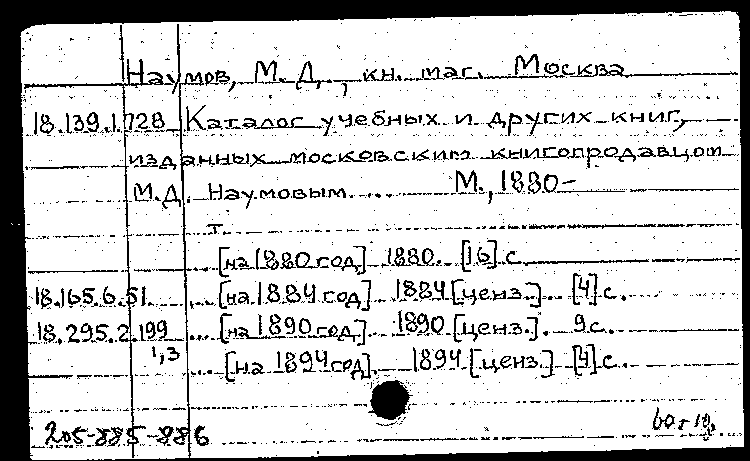 Наумов, М. Д., кн. маг. Москва
18.139.1.728 Каталог учебных и других книг,
изданных московским книгопродавцом
М.Д. Наумовым.... М., 1880-
т.
[на 1880 год] 1880. [16] с.
18.165.6.51. ... [на 1884 год] 1884 [ценз.]. [4] с.
18.295.2.199 ... [на 1890 год]. 1890 [ценз.]. 9 с.
1,3 ... [на 1894 год]. 1894 [ценз.] [4] с.
205-885-886